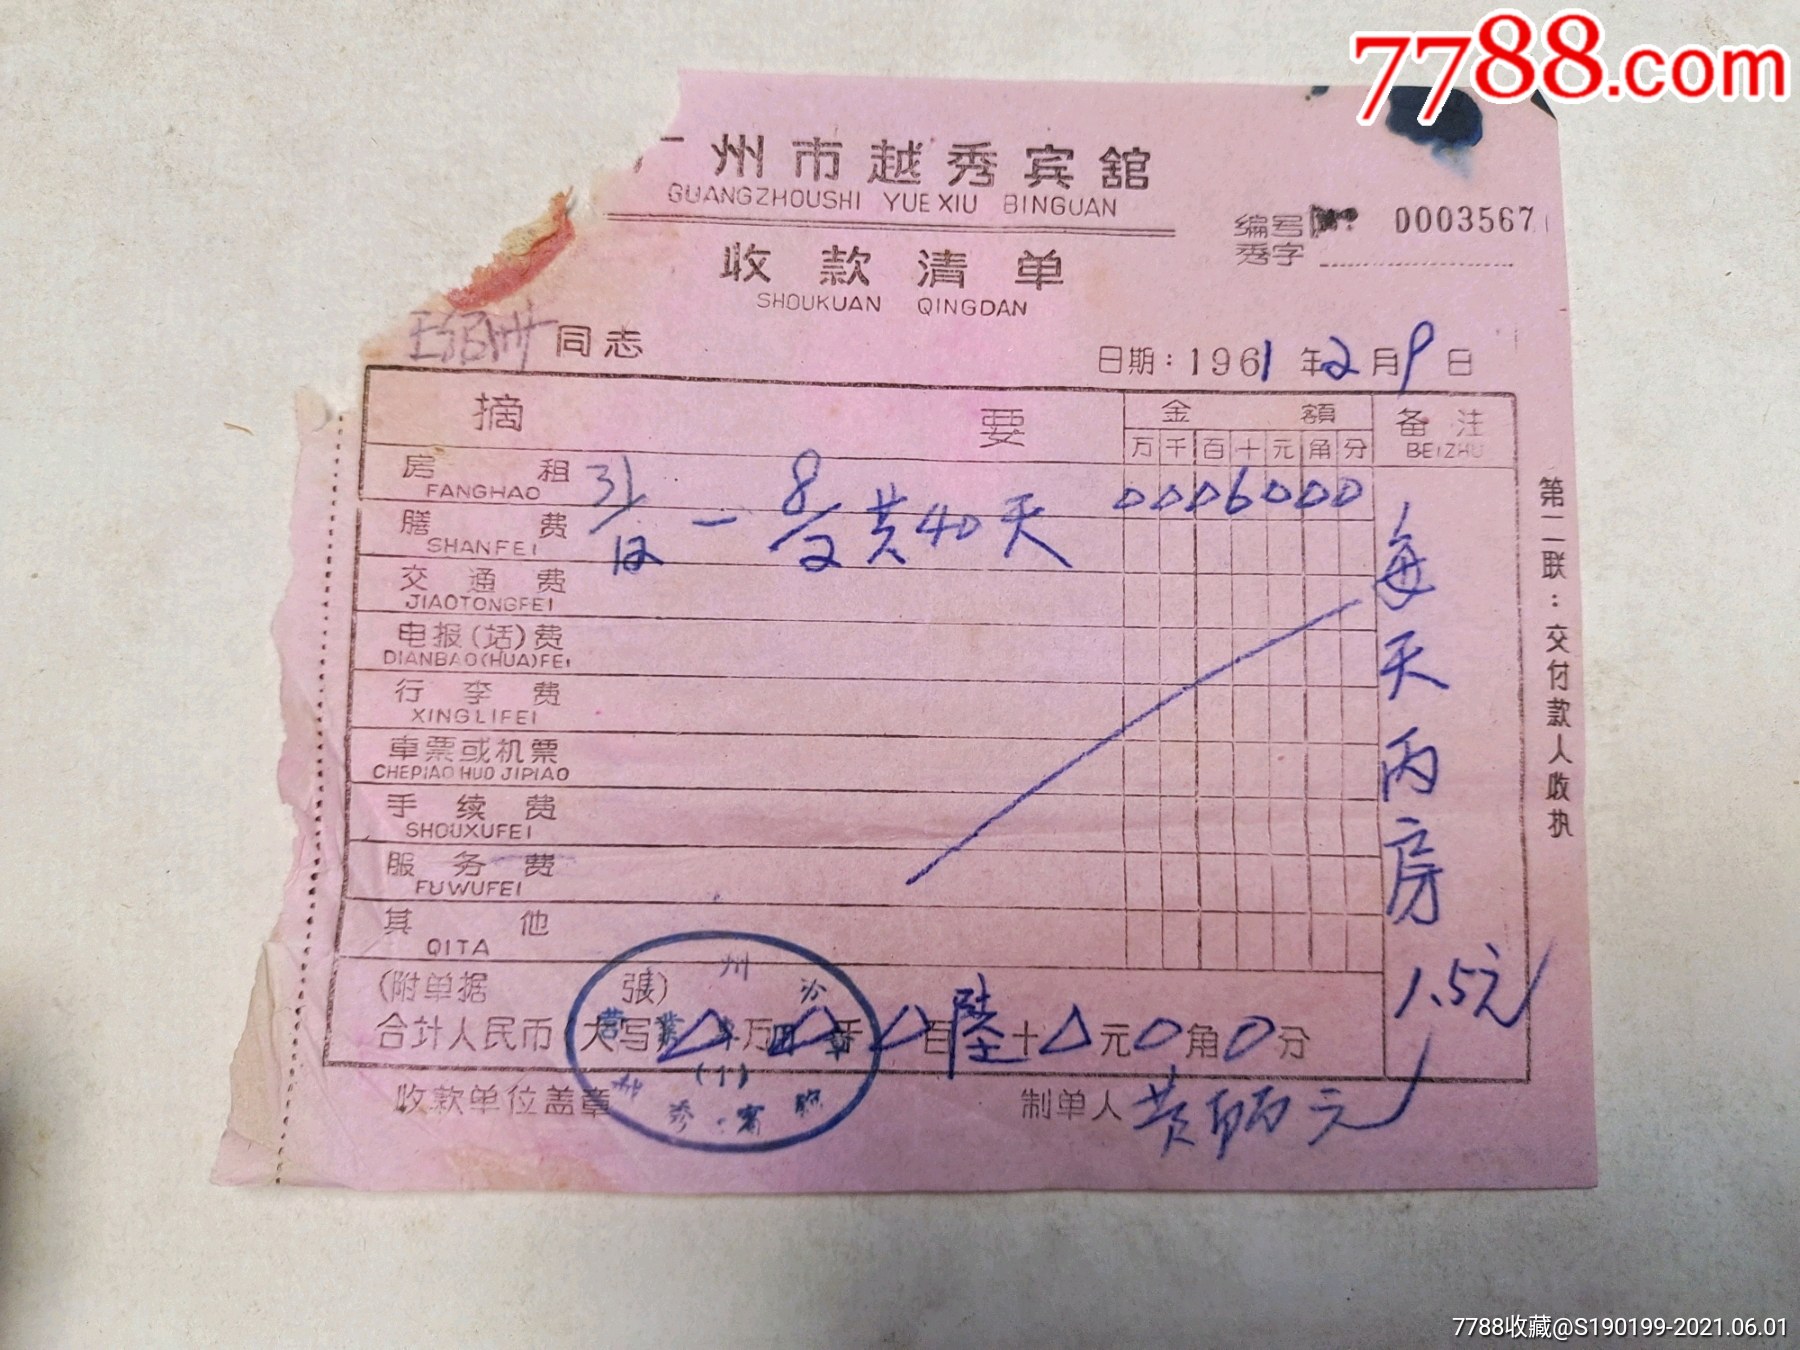 7788.com
广州市越秀宾舘
GUANGZHOUSHI YUEXIU BINGUAN
编号 0003567
秀字
收款清单
SHOUKUAN QINGDAN
同志
日期：1961年2月9日
摘要 金額 备注
BEIZHU
万千百十元角分
房租 31/12—8/2共40天 0006000
FANGHAO
膳费
SHANFEI
交通费
JIAOTONGFEI
电报(话)费
DIANBAO(HUA)FEI
行李费
XINGLIFEI
車票或机票
CHEPIAO HUO JIPIAO
手续费
SHOUXUFEI
服务费
FUWUFEI
其他
QITA
每天丙房1.5元
(附单据 張)
合计人民币(大写) 万 千 百陸十 元0角0分
收款单位盖章
制单人
第二联：交付款人收执
7788收藏@S190199-2021.06.01